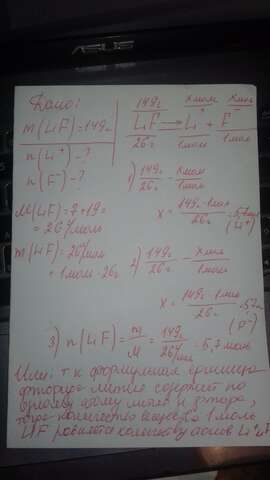 ASUS
Дано:
m(LiF)=149г
n(Li⁺)-?
n(F⁻)-?
M(LiF)=7+19=
= 26г/моль
m(LiF)=26г/моль
· 1моль=26г
149г xмоль xмоль
LiF → Li⁺ + F⁻
26г 1моль 1моль
1) 149г/26г = xмоль/1моль
x = 149г·1моль/26г = 5,7моль (Li⁺)
2) 149г/26г = xмоль/1моль
x = 149г·1моль/26г = 5,7моль (F⁻)
3) n(LiF) = m/M = 149г/26г/моль = 5,7 моль
Или: т.к формульная единица
фторида лития содержит по
одному атому лития и фтора,
тогда количество вещества 1 моль
LiF равняется количеству ионов Li⁺ и F⁻